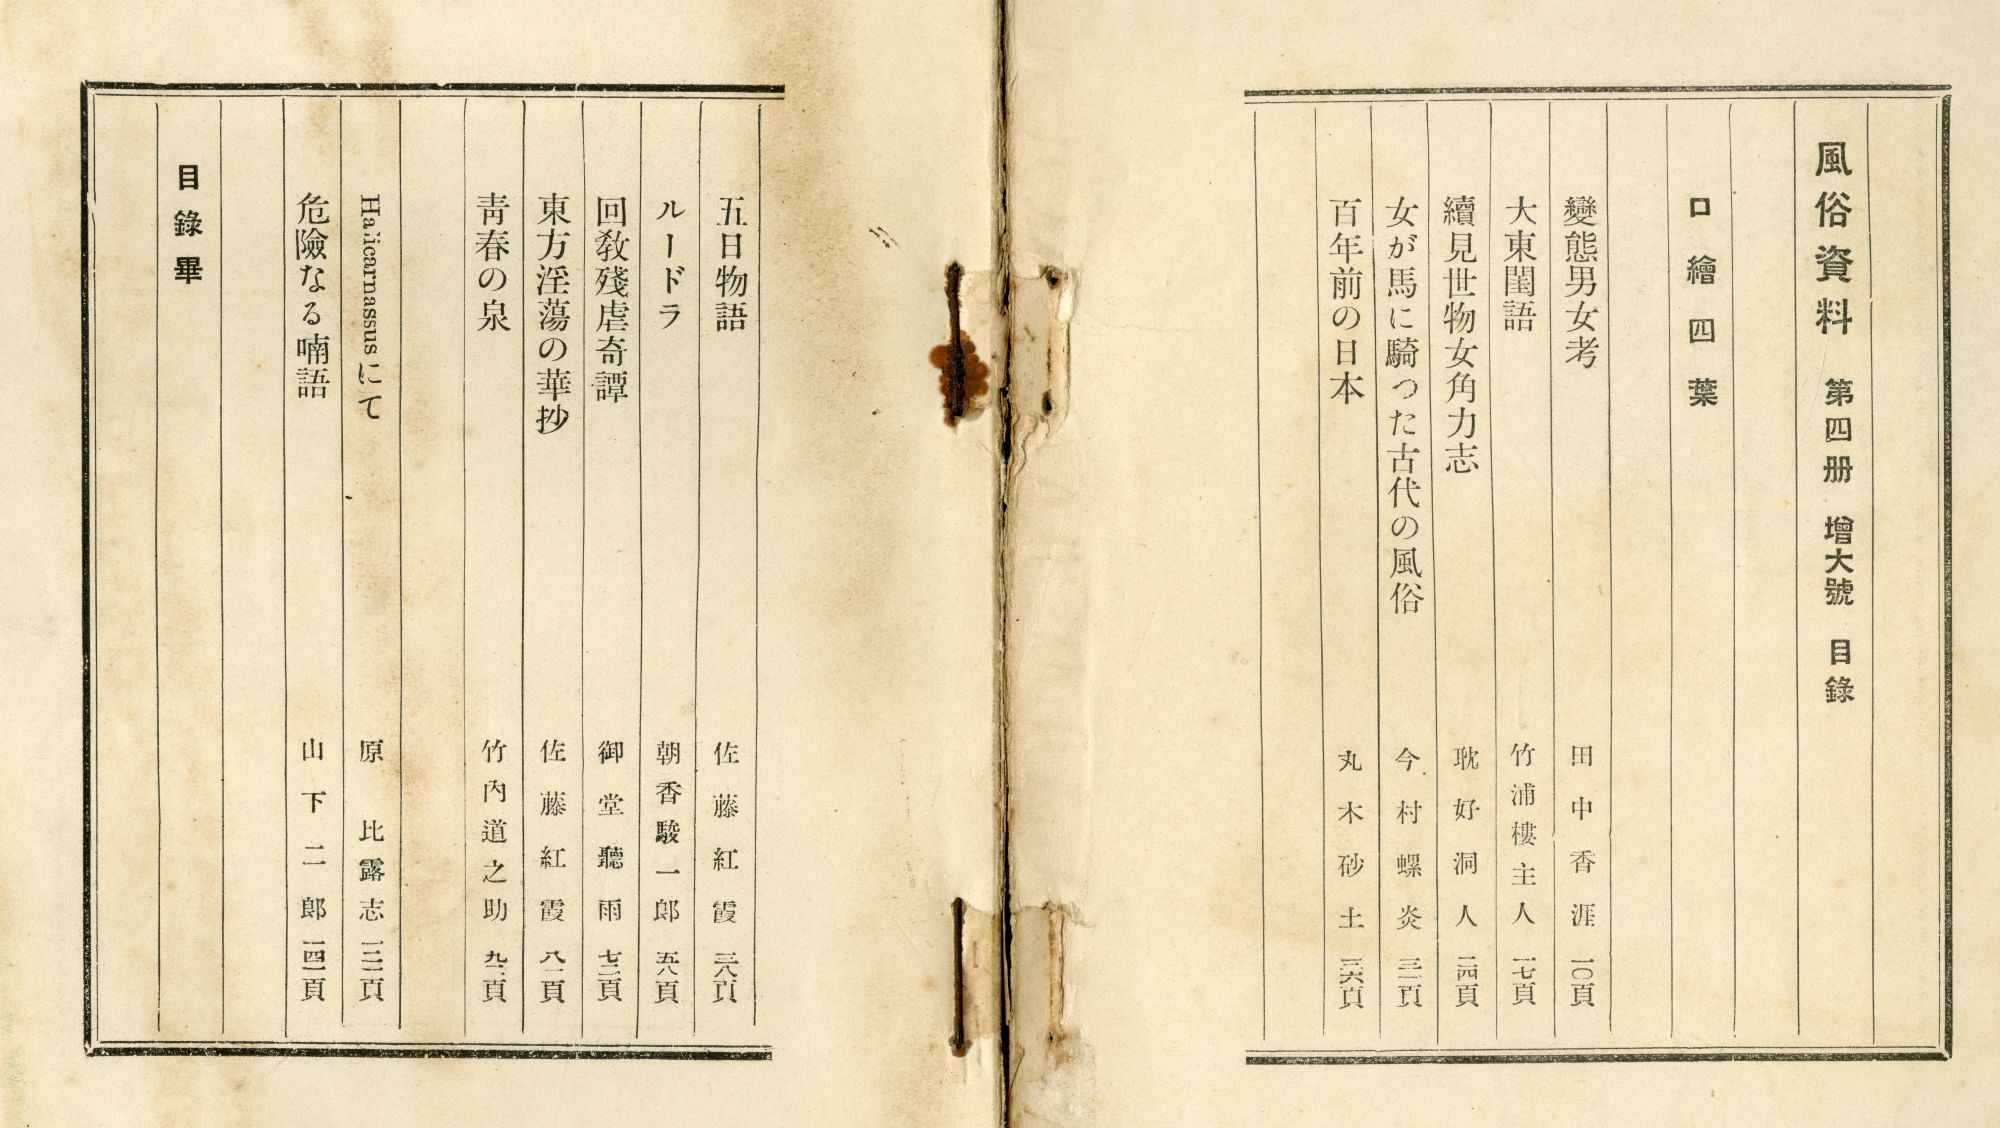 風俗資料 第四册 增大號 目錄
口繪四葉
變態男女考 田中香涯 一〇頁
大東閨語 竹浦樓主人 一七頁
續見世物女角力志 耽好洞人 二四頁
女が馬に騎つた古代の風俗 今村螺炎 三一頁
百年前の日本 丸木砂土 三六頁
五日物語 佐藤紅霞 三八頁
ルードラ 朝香駿一郎 五八頁
回敎殘虐奇譚 御堂聽雨 七二頁
東方淫蕩の華抄 佐藤紅霞 八一頁
靑春の泉 竹內道之助 九二頁
Halicarnassusにて 原比露志 頁
危險なる喃語 山下二郎 一四一頁
目錄畢